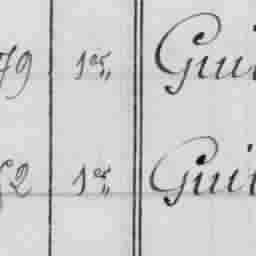 79 1er Gui
52 1er Gui